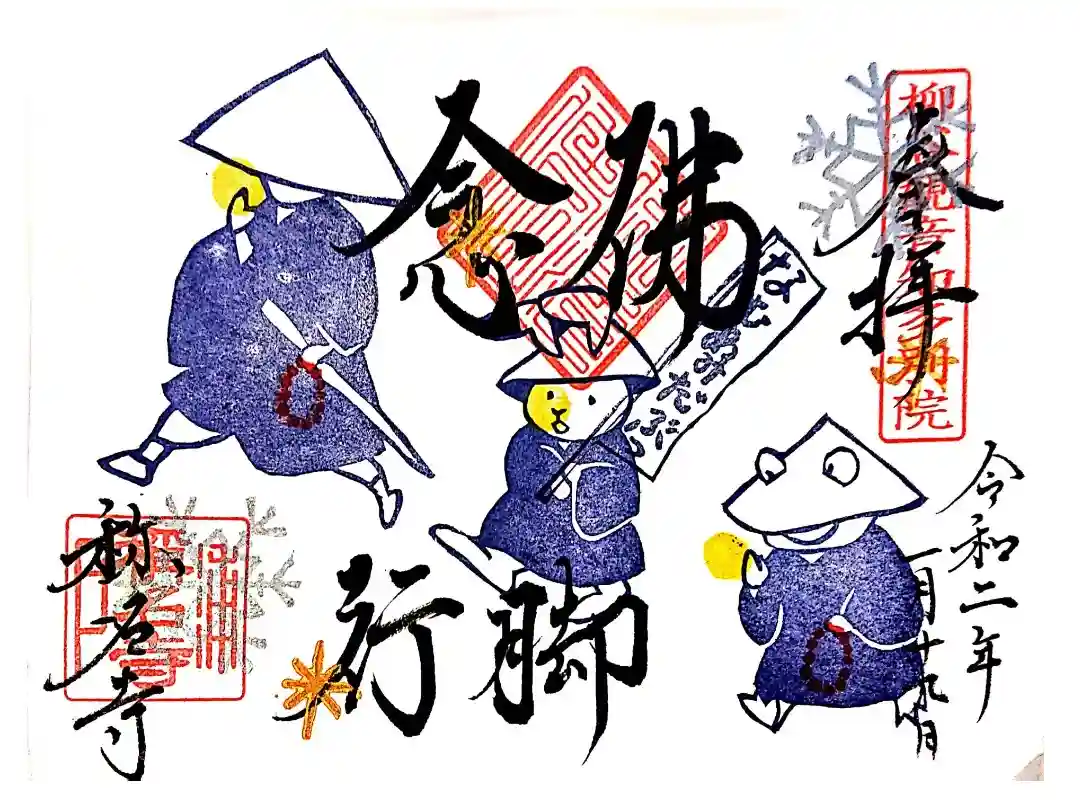 奉拝
念佛
なむあみだぶつ
行脚
令和二年
一月十九日
称名寺